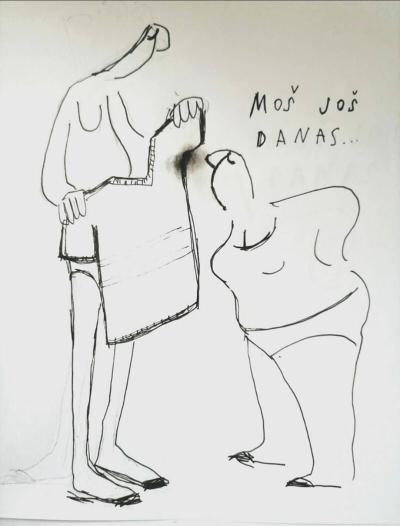 MOŠ JOŠ
DANAS...